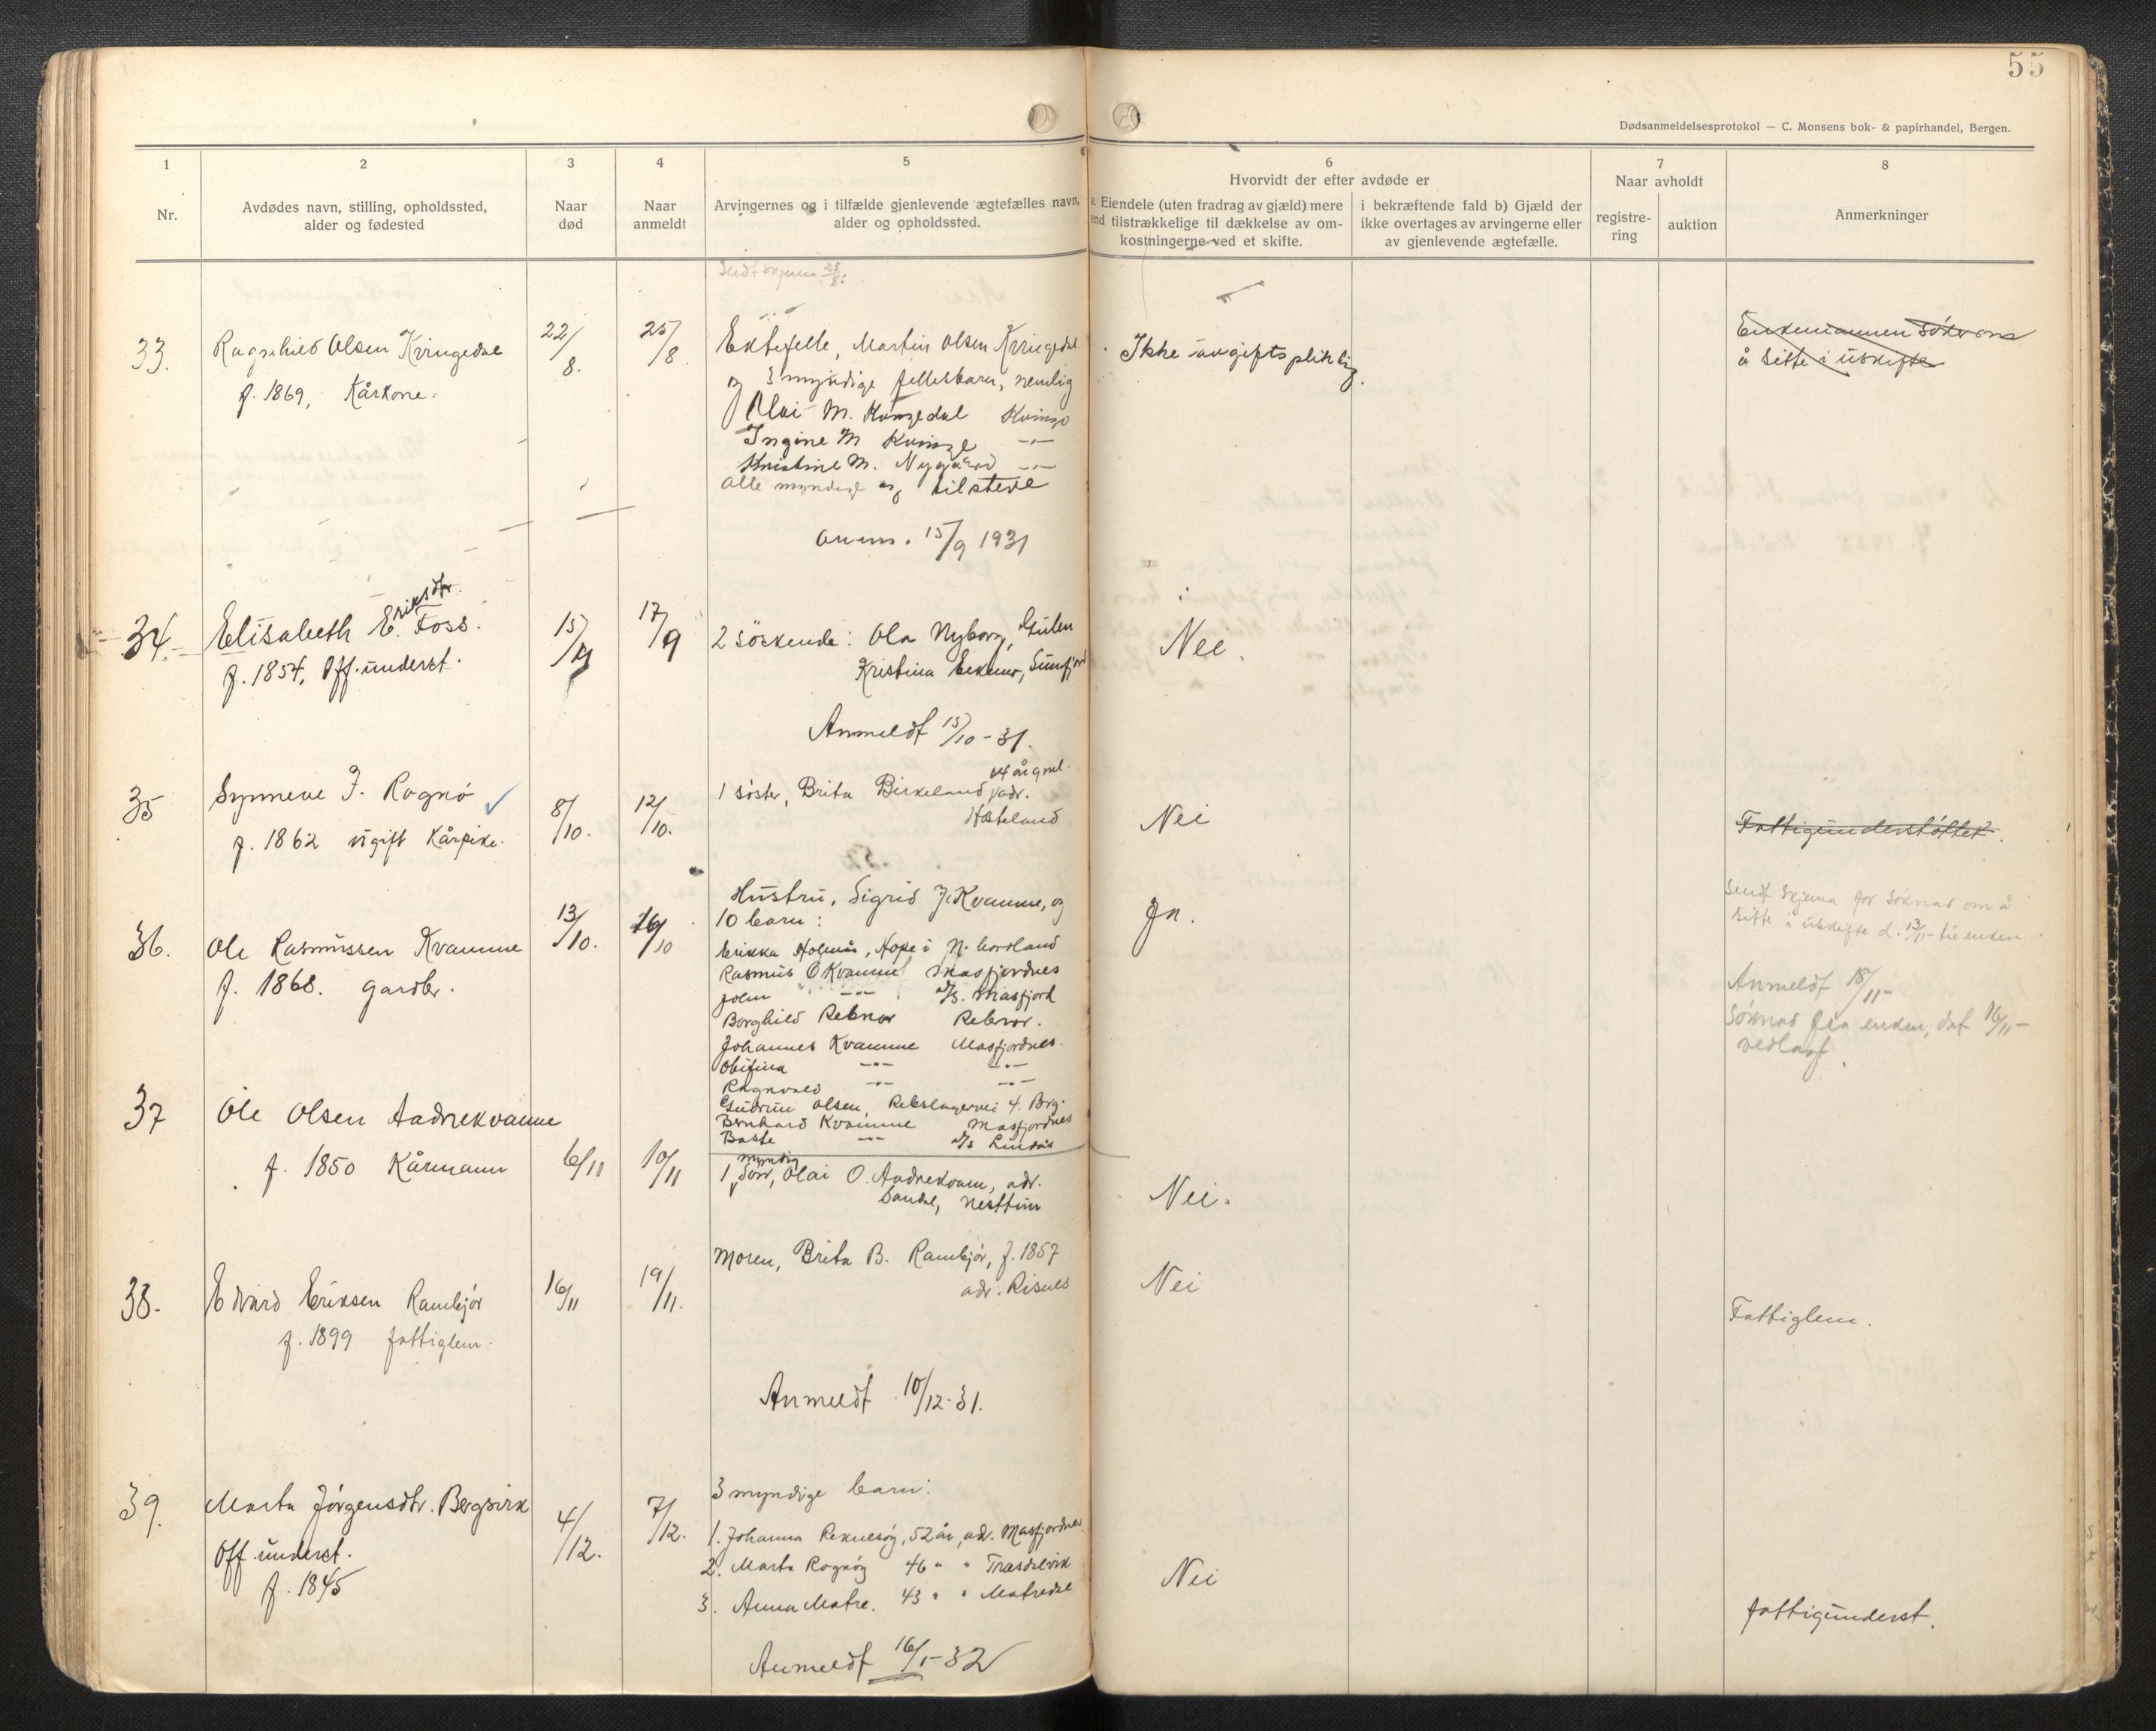 55
Dødsanmeldelsesprotokol — C. Monsens bok- & papirhandel, Bergen.
1
2
3
4
5
6
7
8
Nr.
Avdødes navn, stilling, opholdssted,
alder og fødested
Naar
død
Naar
anmeldt
Arvingernes og i tilfælde gjenlevende ægtefælles navn,
alder og opholdssted.
Hvorvidt der efter avdøde er
a. Eiendele (uten fradrag av gjæld) mere
end tilstrækkelige til dækkelse av om-
kostningerne ved et skifte.
i bekræftende fald b) Gjæld der
ikke overtages av arvingerne eller
av gjenlevende ægtefælle.
Naar avholdt
registre-
ring
auktion
Anmerkninger
Sendt skjema 28/8.
33.
Ragnhild Olsen Kvingedal
f. 1869, Kårkone.
22/8.
25/8
Ektefelle, Martin Olsen Kvingedal
og 3 myndige fellesbarn, nemlig
Olai M. Kvingedal Kvinge
Ingine M Kvinge -"-
Kristine M. Nygaard -"-
alle myndige og tilstede
Ikke avgiftspliktig.
Enkemannen søker om
å sitte i uskifte
anm. 15/9 1931
34.
Elisabeth Eriksdtr. Foss.
f. 1854, Off. underst.
15/9
17/9
2 söskende: Ola Nyborg, Gulen
Kristina, Sunnfjord
Nei.
Anmeldt 15/10-31.
35
Synneve J. Rognø
f. 1862 ugift kårpike.
8/10.
12/10.
64 år gml.
1 søster, Brita Birkeland, adr.
Hosteland
Nei
Fattigunderstøttet.
36.
Ole Rasmussen Kvamme
f. 1868. gardbr.
13/10.
16/10
Hustru, Sigrid J. Kvamme, og
10 barn:
Erikka Holmås, Hope i N. hordland
Rasmus O Kvamme Masfjordnes
John -"- d/s. Masfjord
Borghild Rebnor Rebnor.
Johannes Kvamme Masfjordnes.
-"- -"-
Ragnvald -"- -"-
Gudrun Olsen, Rebslagervei 4. Brg.
Bernhard Kvamme Masfjordnes
Baste -"- d/s Lindås
Ja.
Sendt skjema for søknad om å
sitte i uskifte d. 13/11- til enken.
Anmeldt 18/11-
Søknad fra enken, dat 16/11-
vedlagt.
37
Ole Olsen Aadnekvamme
f. 1850 Kårmann
6/11
10/11
myndig
1 sønn, Olai O. Aadnekvam, adr.
Sandal, Nesttun
Nei.
38.
Edvard Eriksen Rambjör
f. 1899 fattiglem.
16/11
19/11.
Moren, Brita B. Rambjör, f. 1857
adr. Risnes
Nei
Fattiglem.
Anmeldt 10/12-31.
39.
Marta Jörgensdtr. Bergsvik
Off. underst.
f. 1845
4/12.
7/12.
3 myndige barn:
1. Johanna Reknesøy, 52 år, adr. Masfjordnes
2. Marta Rognøy 46 " " Trædalvik
3. Anna Matre. 43 " " Matredal
Nei
fattigunderst.
Anmeldt 16/1-32